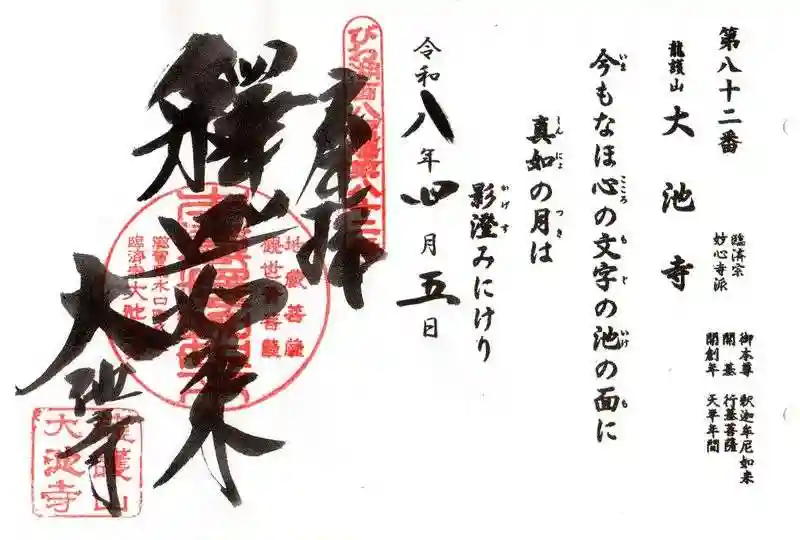 第八十二番
龍護山 大池寺
臨済宗
妙心寺派
御本尊 釈迦牟尼如来
開基 行基菩薩
開創年 天平年間
今もなほ心の文字の池の面に
真如の月は
影澄みにけり
いま
こころ
もじ
いけ
も
しんにょ
つき
かげす
令和八年四月五日
奉拝
釋迦如来
大池寺
地蔵菩薩
観世音菩薩
臨済宗大池寺
龍護山
大池寺